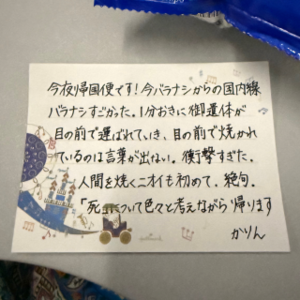 今夜帰国便です！今バラナシからの国内線
バラナシすごかった。1分おきに御遺体が
目の前で運ばれていき、目の前で焼かれ
ているのは言葉が出ない。衝撃すぎた。
人間を焼くニオイも初めて。絶句。
「死」について色々と考えながら帰ります
かりん
Hallmark